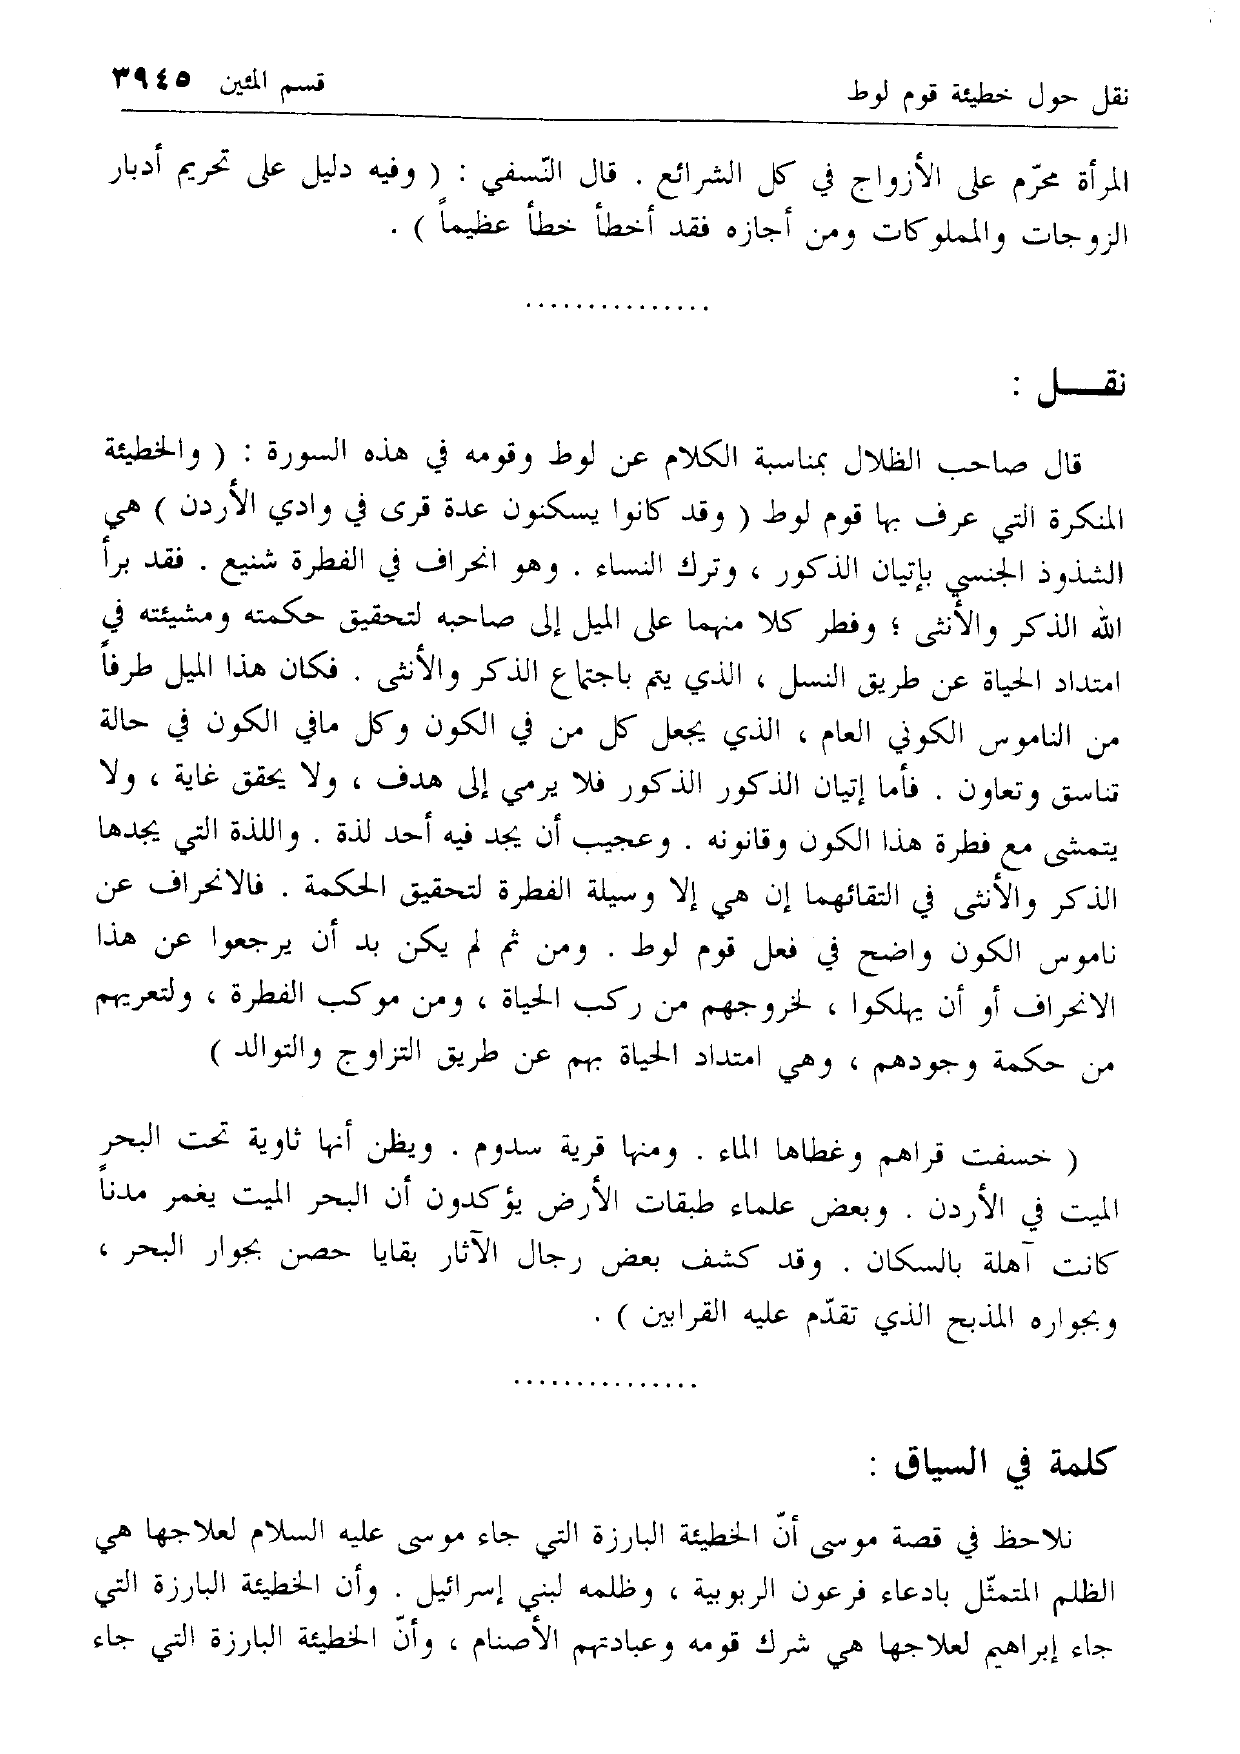 نقل حول خطيئة قوم لوط
قسم المئين ٣٩٤٥
المرأة محرّم على الأزواج في كل الشرائع . قال النّسفي : ( وفيه دليل على تحريم أدبار
الزوجات والمملوكات ومن أجازه فقد أخطأ خطأ عظيماً ) .
...............
نقـــل :
قال صاحب الظلال بمناسبة الكلام عن لوط وقومه في هذه السورة : ( والخطيئة
المنكرة التي عرف بها قوم لوط ( وقد كانوا يسكنون عدة قرى في وادي الأردن ) هي
الشذوذ الجنسي بإتيان الذكور ، وترك النساء . وهو انحراف في الفطرة شنيع . فقد برأ
الله الذكر والأنثى ؛ وفطر كلا منهما على الميل إلى صاحبه لتحقيق حكمته ومشيئته في
امتداد الحياة عن طريق النسل ، الذي يتم باجتماع الذكر والأنثى . فكان هذا الميل طرفاً
من الناموس الكوني العام ، الذي يجعل كل من في الكون وكل مافي الكون في حالة
تناسق وتعاون . فأما إتيان الذكور الذكور فلا يرمي إلى هدف ، ولا يحقق غاية ، ولا
يتمشى مع فطرة هذا الكون وقانونه . وعجيب أن يجد فيه أحد لذة . واللذة التي يجدها
الذكر والأنثى في التقائهما إن هي إلا وسيلة الفطرة لتحقيق الحكمة . فالانحراف عن
ناموس الكون واضح في فعل قوم لوط . ومن ثم لم يكن بد أن يرجعوا عن هذا
الانحراف أو أن يهلكوا ، لخروجهم من ركب الحياة ، ومن موكب الفطرة ، ولتعريهم
من حكمة وجودهم ، وهي امتداد الحياة بهم عن طريق التزاوج والتوالد )
( خسفت قراهم وغطاها الماء . ومنها قرية سدوم . ويظن أنها ثاوية تحت البحر
الميت في الأردن . وبعض علماء طبقات الأرض يؤكدون أن البحر الميت يغمر مدناً
كانت آهلة بالسكان . وقد كشف بعض رجال الآثار بقايا حصن بجوار البحر ،
وبجواره المذبح الذي تقدّم عليه القرابين ) .
...............
كلمة في السياق :
نلاحظ في قصة موسى أنّ الخطيئة البارزة التي جاء موسى عليه السلام لعلاجها هي
الظلم المتمثّل بادعاء فرعون الربوبية ، وظلمه لبني إسرائيل . وأن الخطيئة البارزة التي
جاء إبراهيم لعلاجها هي شرك قومه وعبادتهم الأصنام ، وأنّ الخطيئة البارزة التي جاء